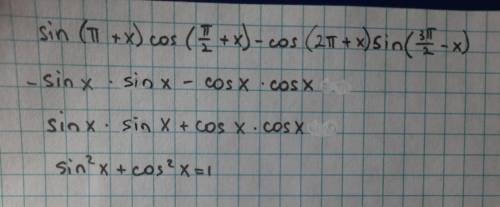 sin (π + x) cos (π/2 + x) - cos (2π + x) sin (3π/2 - x)
- sin x · sin x - cos x · cos x
sin x · sin x + cos x · cos x
sin²x + cos²x = 1